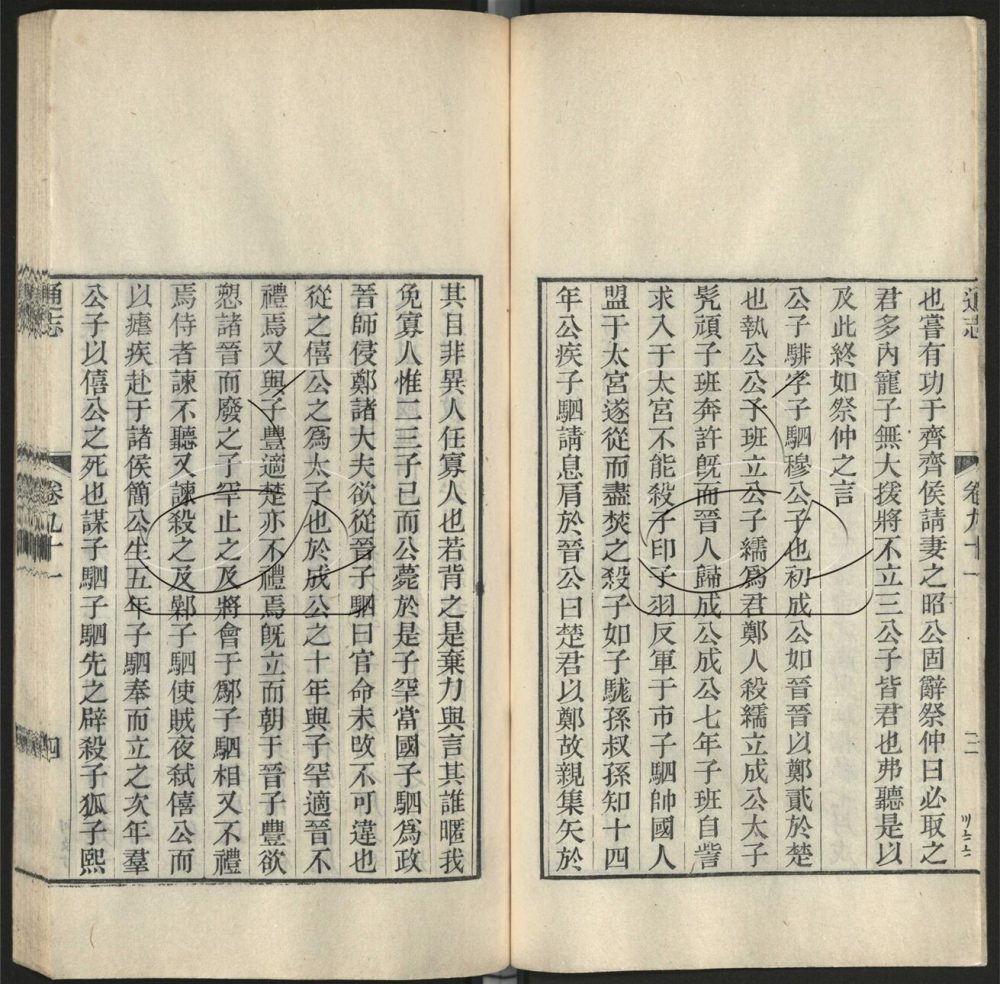 通志
卷九十一
三
也嘗有功于齊齊侯請妻之昭公固辭祭仲曰必取之
君多內寵子無大援將不立三公子皆君也弗聽是以
及此終如祭仲之言
公子騑字子駟穆公子也初成公如晉晉以鄭貳於楚
也執公公子班立公子繻爲君鄭人殺繻立成公太子
髠頑子班奔許旣而晉人歸成公成公七年子班自訾
求入于太宮不能殺子印子羽反軍于市子駟帥國人
盟于太宮遂從而盡焚之殺子如子駹孫叔孫知十四
年公疾子駟請息肩於晉公曰楚君以鄭故親集矢於
其目非異人任寡人也若背之是棄力與言其誰暱我
免寡人惟二三子已而公薨於是子罕當國子駟爲政
晉師侵鄭諸大夫欲從晉子駟曰官命未改不可違也
從之僖公之爲太子也於成公之十年與子罕適晉不
禮焉又與子豐適楚亦不禮焉旣立而朝于晉子豐欲
愬諸晉而廢之子罕止之及將會于鄬子駟相又不禮
焉侍者諫不聽又諫殺之及鄵子駟使賊夜弑僖公而
以瘧疾赴于諸侯簡公生五年子駟奉而立之次年羣
公子以僖公之死也謀子駟子駟先之辟殺子狐子熙
通志
卷九十一
四